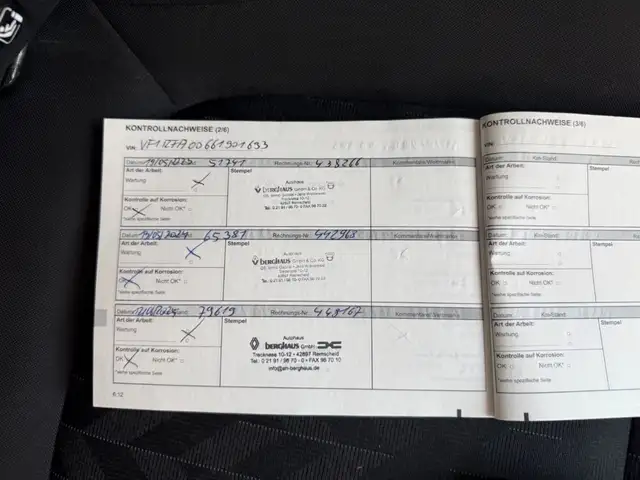 KONTROLLNACHWEISE (2/6)
VIN:
Datum: 51741 Rechnungs-Nr: 438266 Kommentare/Weiteres
Art der Arbeit:
Wartung
Stempel
Autohaus
BERGHAUS GmbH & Co. KG
Kontrolle auf Korrosion:
OK Nicht OK*
*siehe spezifische Seite
Datum: 19/05/2024 65381 Rechnungs-Nr: 442968
Art der Arbeit:
Wartung
Stempel
BERGHAUS GmbH & Co. KG
Kontrolle auf Korrosion:
OK* Nicht OK*
*siehe spezifische Seite
Datum: 79619 Rechnungs-Nr: 448167
Art der Arbeit:
Wartung
Stempel
Autohaus
BERGHAUS GmbH
Treckness 10-12 • 42897 Remscheid
Tel.: 0 21 91 / 96 70 - 0 • FAX 96 70 10
info@ah-berghaus.de
Kontrolle auf Korrosion:
OK Nicht OK*
*siehe spezifische Seite
6.12
KONTROLLNACHWEISE (3/6)
VIN:
Datum: Km-Stand:
Art der Arbeit:
Wartung
Kontrolle auf Korrosion:
OK Nicht OK*
*siehe spezifische Seite
Datum: Km-Stand:
Art der Arbeit:
Wartung
Kontrolle auf Korrosion:
OK Nicht OK*
*siehe spezifische Seite
Datum: Km-Stand:
Art der Arbeit:
Wartung
Kontrolle auf Korrosion:
OK Nicht OK*
*siehe spezifische Seite